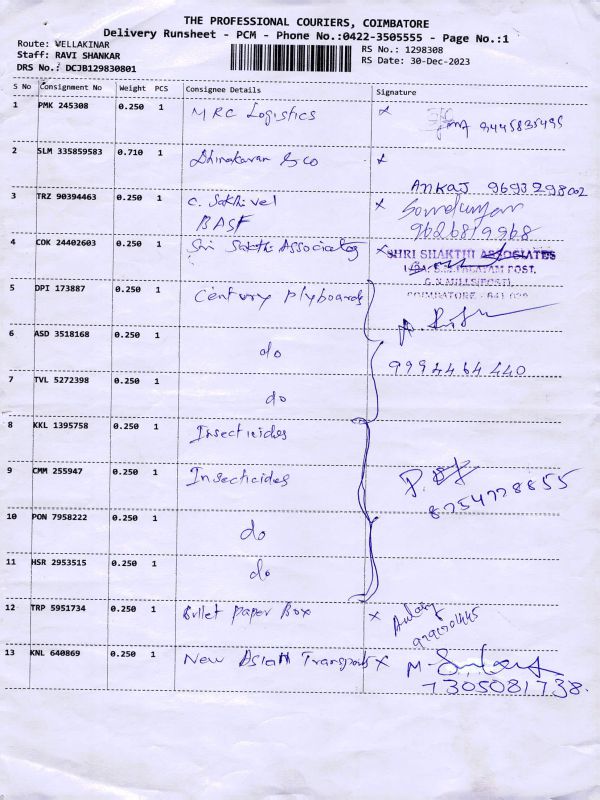 THE PROFESSIONAL COURIERS, COIMBATORE
Delivery Runsheet - PCM - Phone No.:0422-3505555 - Page No.:1
Route: VELLAKINAR
Staff: RAVI SHANKAR
DRS No.: DCJB129830801
RS No.: 1298308
RS Date: 30-Dec-2023
S No Consignment No Weight PCS Consignee Details Signature
1 PMK 245308 0.250 1 MRC Logistics x 9445835495
2 SLM 335859583 0.710 1 Dhinakaran & co x
Ankaj 9693298002
3 TRZ 90394463 0.250 1 C. Sakthivel x
BASF 9626819968
4 COK 24402603 0.250 1 Sri Sakthi Associates x SHRI SHAKTHI ASSOCIATES
POST.
G.N.MILLS(POST)
COIMBATORE - 641 029
5 DPI 173887 0.250 1 Century Plyboards
6 ASD 3518168 0.250 1 do
9994464440
7 TVL 5272398 0.250 1 do
8 KKL 1395758 0.250 1 Insecticides
9 CMM 255947 0.250 1 Insecticides
8754778855
10 PON 7958222 0.250 1 do
11 HSR 2953515 0.250 1 do
12 TRP 5951734 0.250 1 Billet Paper Box x
13 KNL 640869 0.250 1 New Asian Transports x
7305081738.